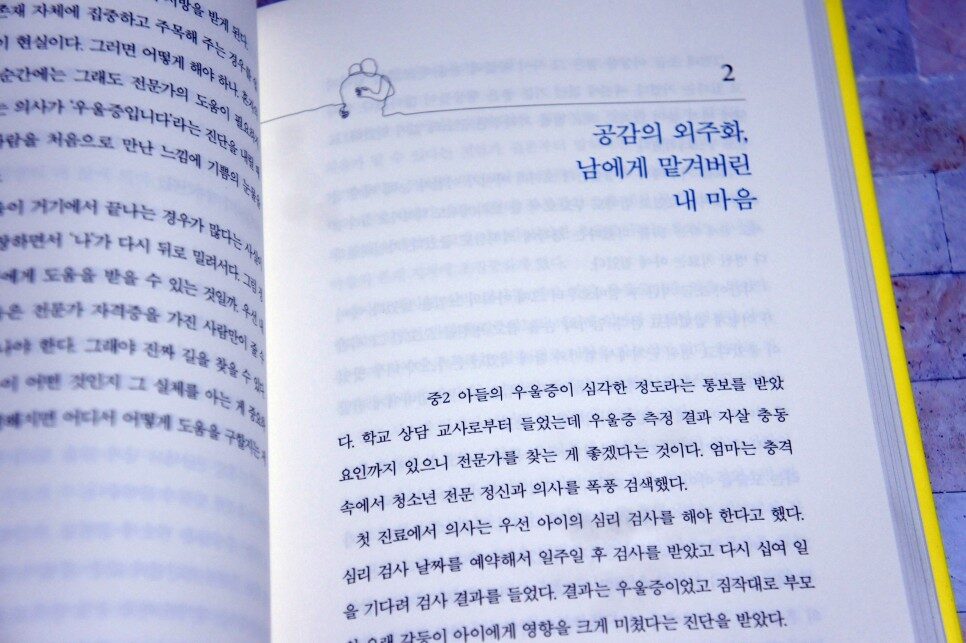 서방을 받게 된다.
존재 자체에 집중하고 주목해 주는 경우를
이 현실이다. 그러면 어떻게 해야 하나.
순간에는 그래도 전문가의 도움이
는 의사가 '우울증입니다'라는 진단을 내릴 때
사람을 처음으로 만난 느낌에 기쁨의
이 거기에서 끝나는 경우가 많다는 사실이
장하면서 '나'가 다시 뒤로 밀려서다.
에게 도움을 받을 수 있는 것일까. 우선
은 전문가 자격증을 가진 사람만이 줄 수
나야 한다. 그래야 진짜 길을 찾을 수 있는
이 어떤 것인지 그 실제를 아는 게
해지면 어디서 어떻게 도움을 구할지는
2
공감의 외주화,
남에게 맡겨버린
내 마음
중2 아들의 우울증이 심각한 정도라는 통보를 받았
다. 학교 상담 교사로부터 들었는데 우울증 측정 결과 자살 충동
요인까지 있으니 전문가를 찾는 게 좋겠다는 것이다. 엄마는 충격
속에서 청소년 전문 정신과 의사를 폭풍 검색했다.
첫 진료에서 의사는 우선 아이의 심리 검사를 해야 한다고 했다.
심리 검사 날짜를 예약해서 일주일 후 검사를 받았고 다시 십여 일
을 기다려 검사 결과를 들었다. 결과는 우울증이었고 짐작대로 부모
의 오랜 갈등이 아이에게 영향을 크게 미쳤다는 진단을 받았다.